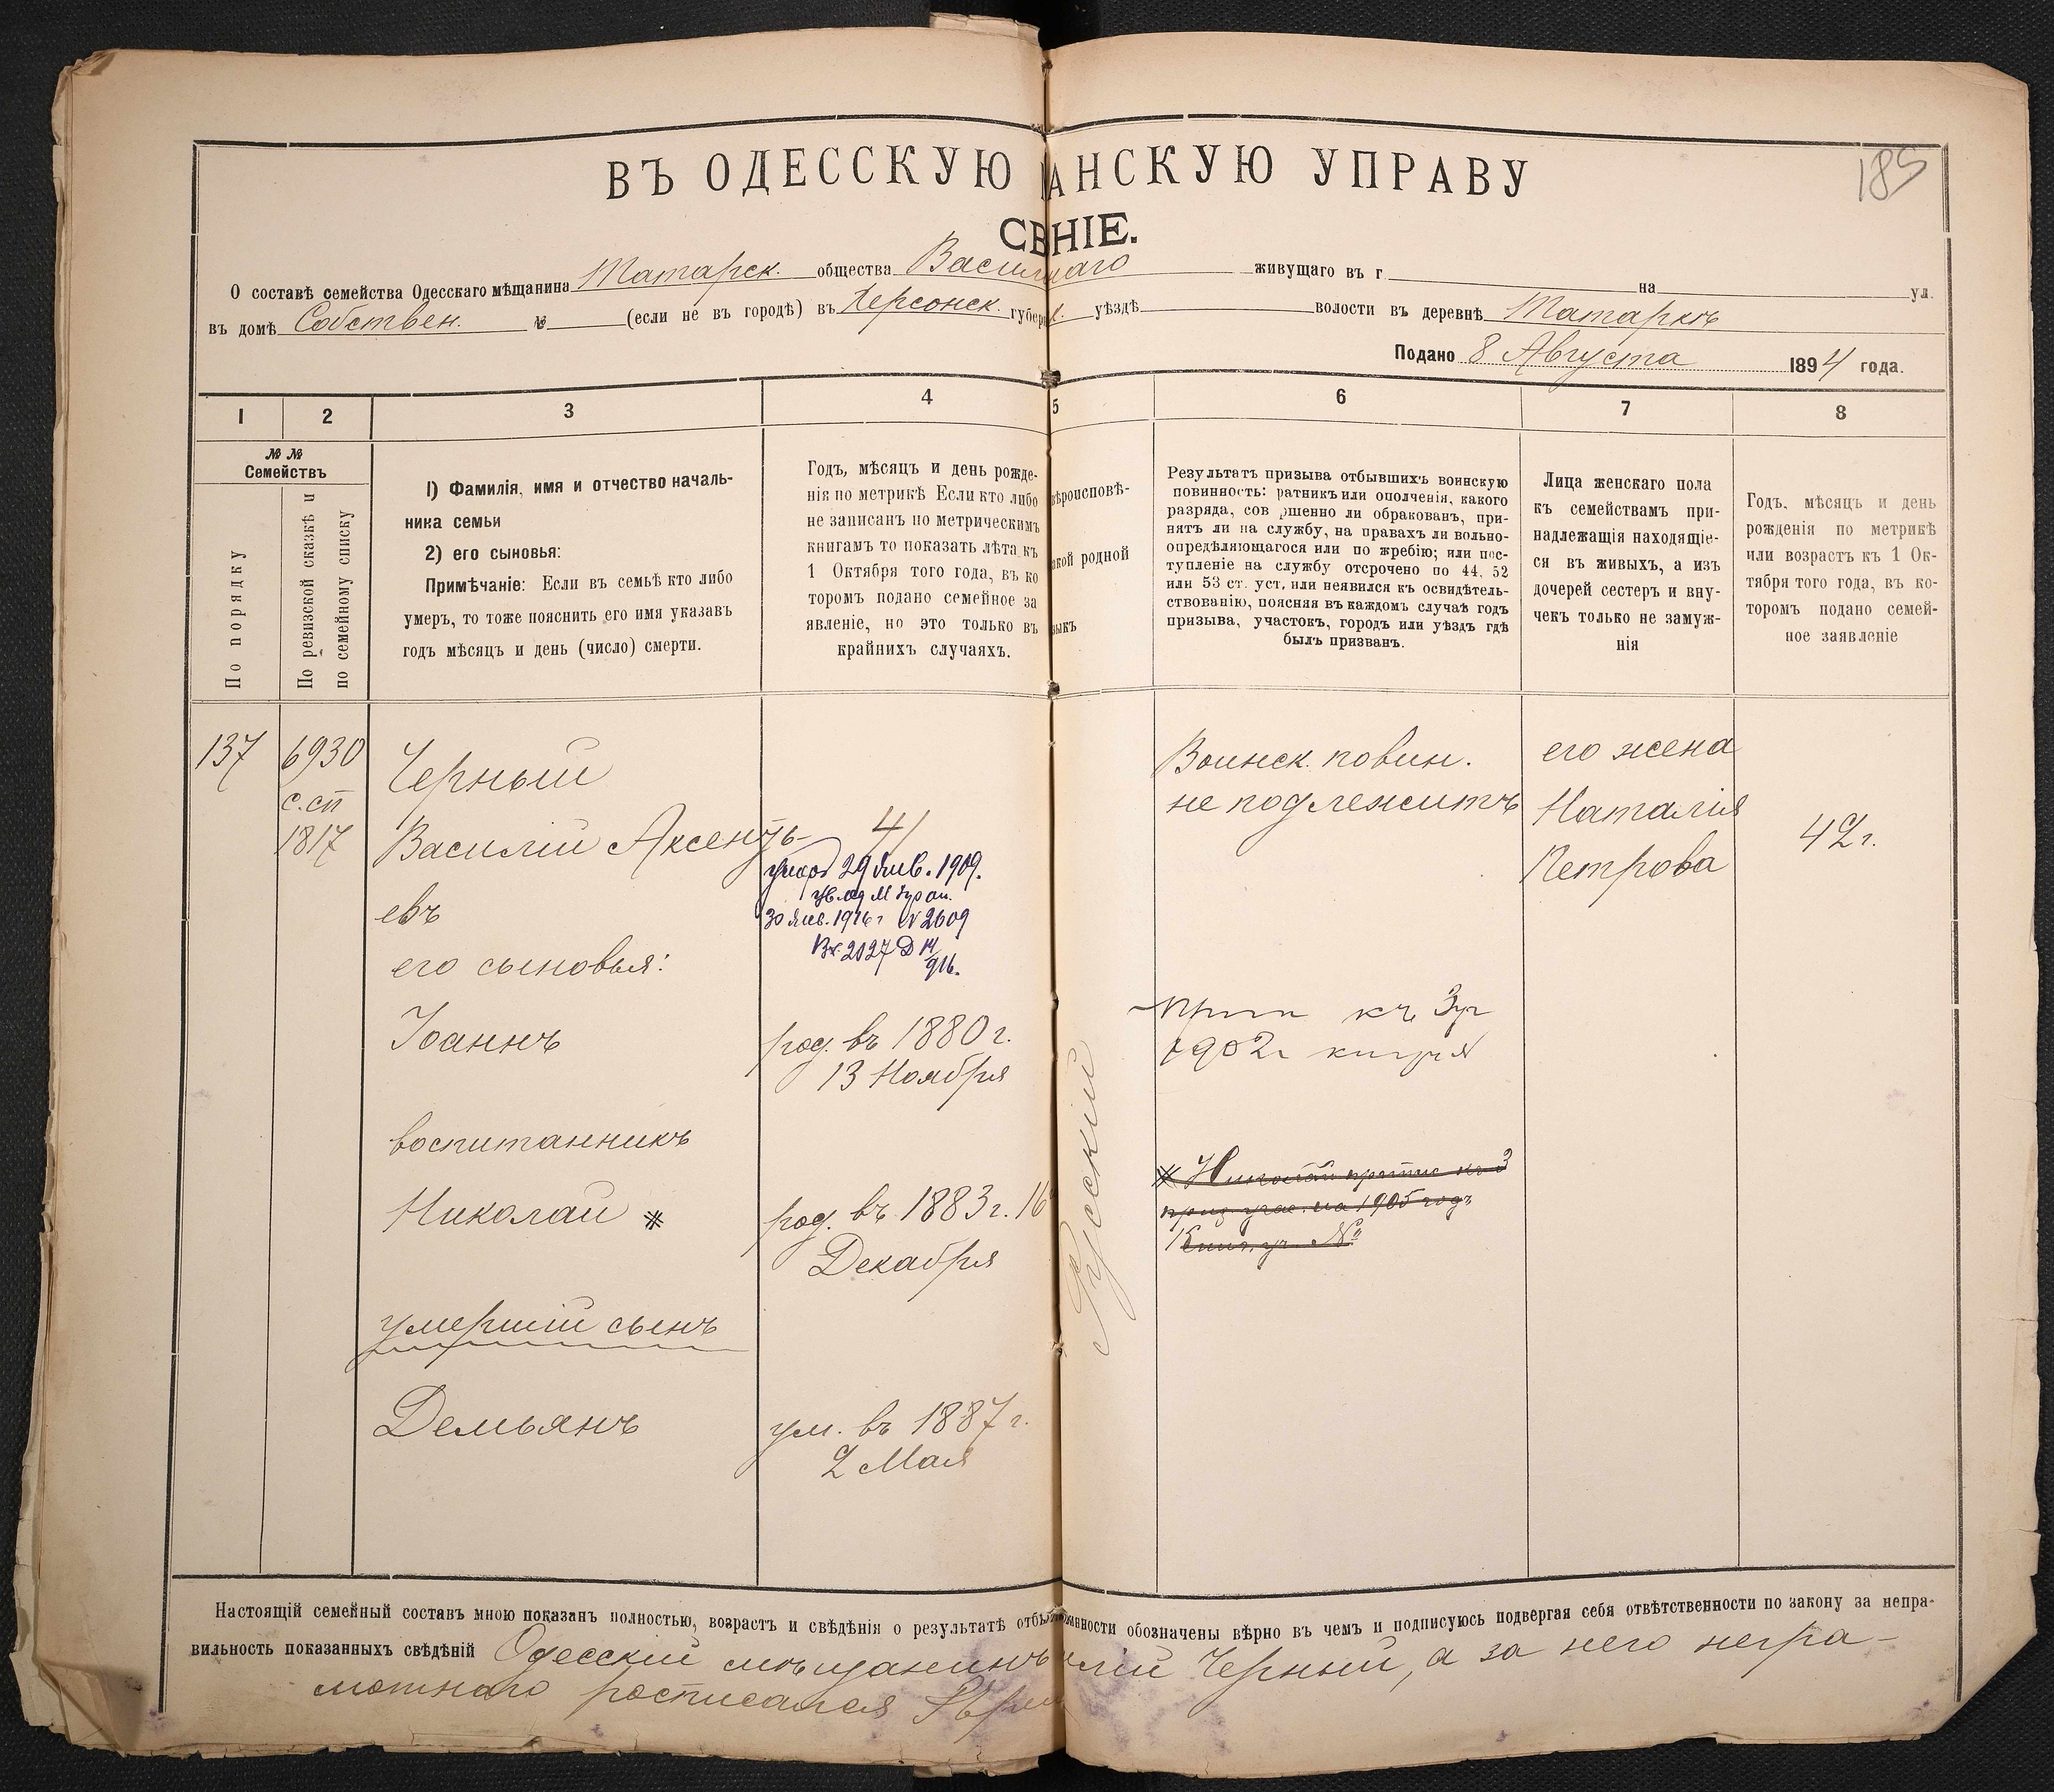 185
ВЪ ОДЕССКУЮ АНСКУЮ УПРАВУ
СВНІЕ.
О составѣ семейства Одесскаго мѣщанина Татарск. общества Васил наго живущаго въ г на ул.
въ домѣ Собствен. № (если не въ городѣ) въ Херсонск. губер уѣздѣ волости въ деревнѣ Татаркѣ
Подано 8 Августа 1894 года.
1 2 3 4 5 6 7 8
№ №
Семействъ
По порядку
По ревизской сказкѣ и
по семейному списку
1) Фамилія, имя и отчество началь-
ника семьи
2) его сыновья:
Примѣчаніе: Если въ семьѣ кто либо
умеръ, то тоже пояснить его имя указавъ
годъ мѣсяцъ и день (число) смерти.
Годъ, мѣсяцъ и день рожде-
нія по метрикѣ Если кто либо
не записанъ по метрическимъ
книгамъ то показать лѣта къ
1 Октября того года, въ ко
торомъ подано семейное за
явленіе, но это только въ
крайнихъ случаяхъ.
вѣроисповѣ-
кой родной
зыкъ
Результатъ призыва отбывшихъ воинскую
повинность: ратникъ или ополченія, какого
разряда, сов ршенно ли обракованъ, при-
нятъ ли на службу, на правахъ ли вольно-
опредѣляющагося или по жребію; или пос-
тупленіе на службу отсрочено по 44, 52
или 53 ст. уст. или неявился къ освидѣтель-
ствованію, поясняя въ каждомъ случаѣ годъ
призыва, участокъ, городъ или уѣздъ гдѣ
былъ призванъ.
Лица женскаго пола
къ семействамъ при-
надлежащія находящіе-
ся въ живыхъ, а изъ
дочерей сестеръ и вну-
чекъ только не замуж-
нія
Годъ, мѣсяцъ и день
рожденія по метрикѣ
или возрастъ къ 1 Ок-
тября того года, въ ко-
торомъ подано семей-
ное заявленіе
137 6930
с.сп
1817
Черный
Василій Аксентъ-
евъ
41
29 Янв. 1909.
30 Янв. 1916 г №2609
Вх. 2027 Д 14/916.
Воинск. повин.
не подлежитъ
его жена
Наталія
Петрова
42 г.
его сыновья:
Іоаннъ
род. въ 1880 г.
13 Ноября
къ 3 уч
1902 г
Русскій
воспитанникъ
Николай *
род. въ 1883 г. 16
Декабря
* Николай къ 3
приз. учас. на 1905 годъ
№
умершій сынъ
Демьянъ
ум. въ 1887 г.
2 Мая
Настоящій семейный составъ мною показанъ полностью, возрастъ и свѣдѣнія о результатѣ отбы нности обозначены вѣрно въ чемъ и подписуюсь подвергая себя отвѣтственности по закону за непра-
вильность показанныхъ свѣдѣній Одесскій мѣщанинъ лій Черный, а за него негра-
мотнаго росписался